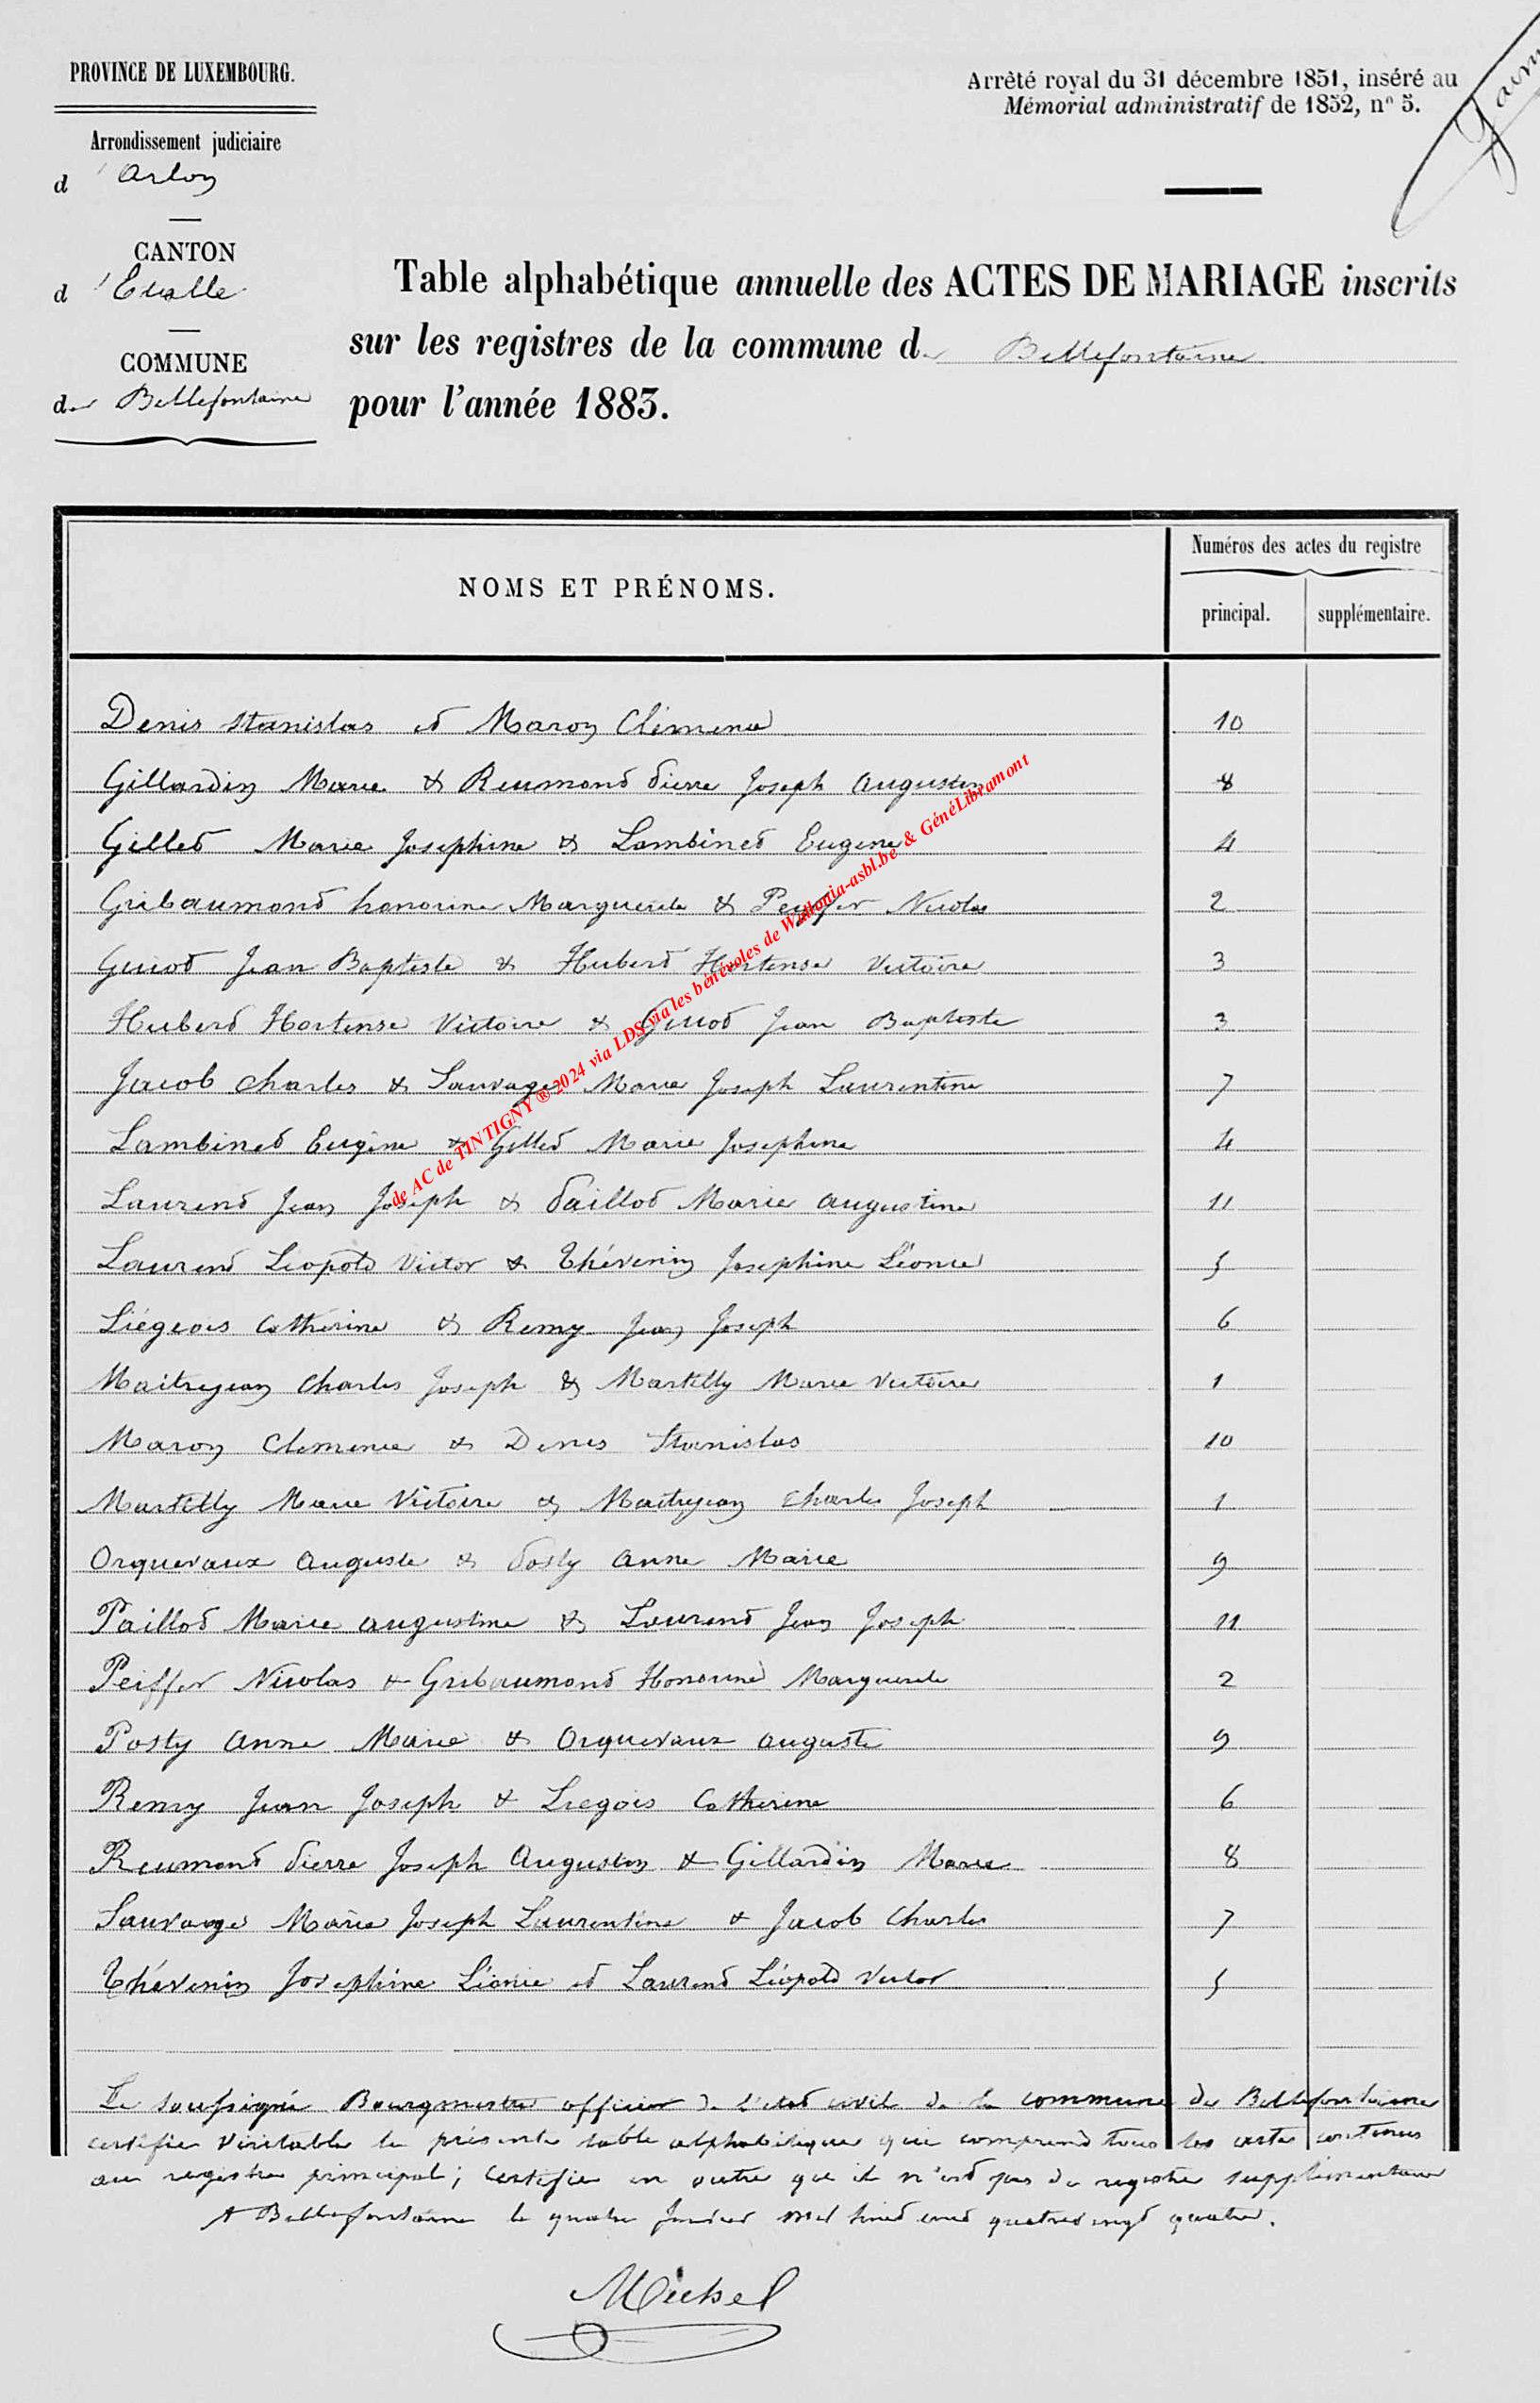 PROVINCE DE LUXEMBOURG.
Arrêté royal du 31 décembre 1851, inséré au
Mémorial administratif de 1852, nº 5.
Arrondissement judiciaire
d'Arlon
CANTON
d'Etalle
COMMUNE
de Bellefontaine
Table alphabétique annuelle des ACTES DE MARIAGE inscrits
sur les registres de la commune de Bellefontaine
pour l'année 1883.
NOMS ET PRÉNOMS.
Numéros des actes du registre
principal. supplémentaire.
Denis Stanislas et Maron Clémence 10
Gillardin Marie & Reumont Pierre Joseph Augustin 8
Gillet Marie Josephine & Lambinet Eugene 4
Gribaumont honorine Marguerite & Peiffer Nicolas 2
Guiot Jean Baptiste & Hubert Hortense Victoire 3
Hubert Hortense Victoire & Guiot Jean Baptiste 3
Jacob Charles & Sauvage Marie Joseph Laurentine 7
Lambinet Eugène & Gillet Marie Josephine 4
Laurent Jean Joseph & Paillot Marie Augustine 11
Laurent Leopold Victor & Thévenin Josephine Léonie 5
Liégeois Catherine & Remy Jean Joseph 6
Maitrejean Charles Joseph & Martilly Marie Victoire 1
Maron Clemence & Denis Stanislas 10
Martilly Marie Victoire & Maitrejean Charles Joseph 1
Orquevaux Auguste & Posty Anne Marie 9
Paillot Marie Augustine & Laurent Jean Joseph 11
Peiffer Nicolas & Gribaumont Honorine Marguerite 2
Posty Anne Marie & Orquevaux Auguste 9
Remy Jean Joseph & Liegois Catherine 6
Reumont Pierre Joseph Augustin & Gillardin Marie 8
Sauvage Marie Joseph Laurentine & Jacob Charles 7
Thévenin Josephine Léonie et Laurent Léopold Victor 5
Le soussigné Bourgmestre officier de l'etat civil de la commune de Bellefontaine
certifie véritable la présente table alphabétique qui comprend tous les actes contenus
au registre principal; certifie en outre que il n'est pas de registre supplémentaire
A Bellefontaine le quatre Janvier mil huit cent quatre vingt quatre.
Michel
de AC de TINTIGNY ® 2024 via LDS via les bénévoles de Wallonia-asbl.be & GénéLibramont